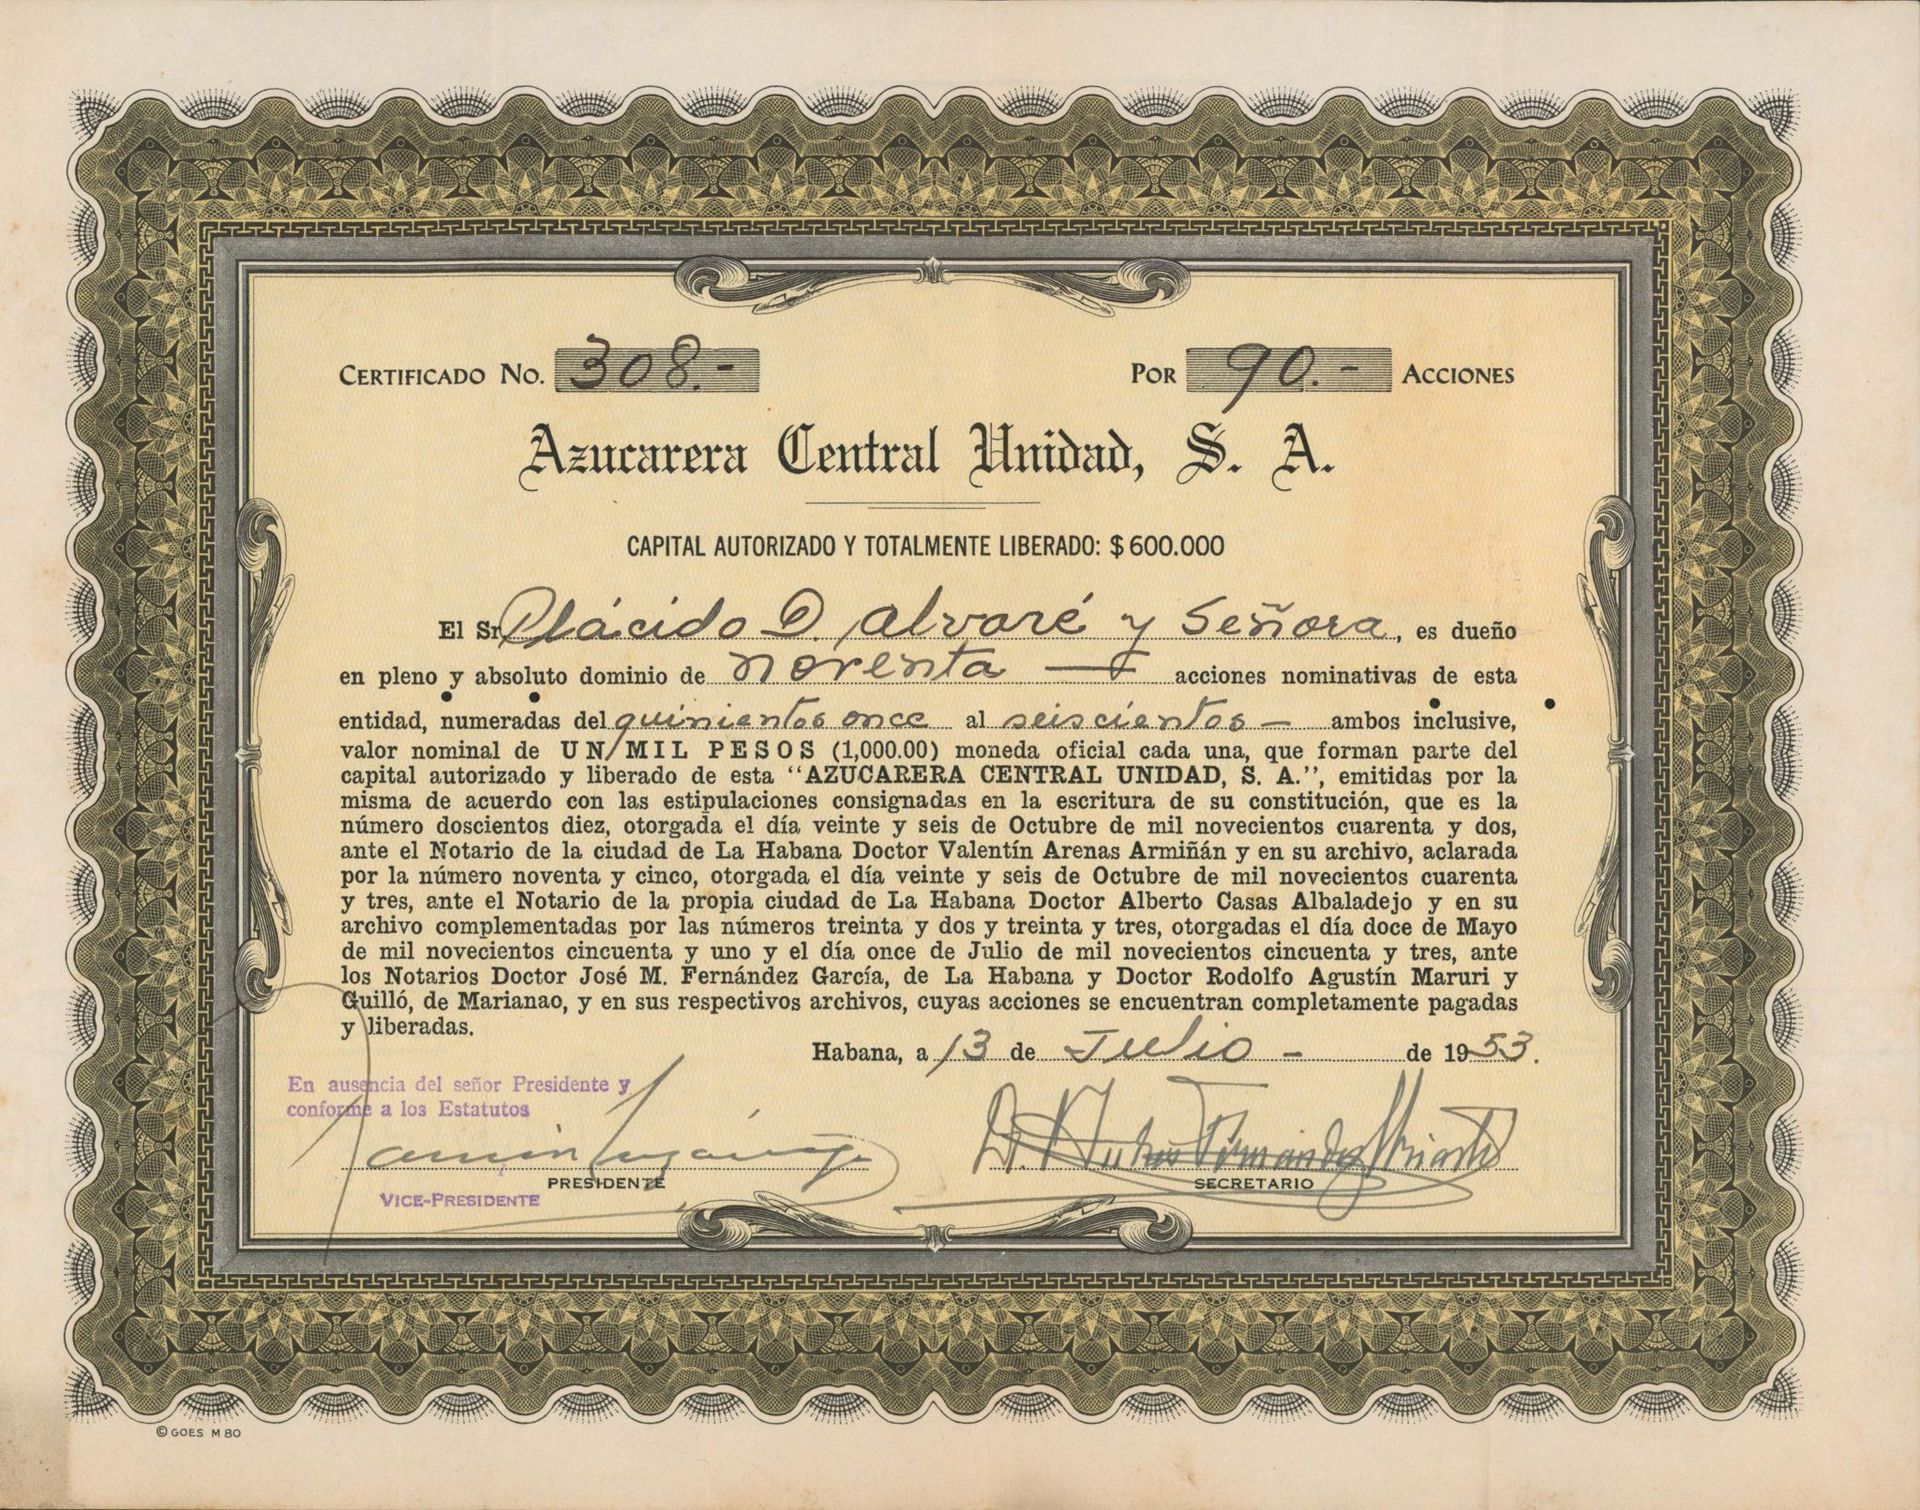 CERTIFICADO NO. 308.- POR 90.- ACCIONES
Azucarera Central Unidad, S. A.
CAPITAL AUTORIZADO Y TOTALMENTE LIBERADO: $ 600.000
El Sr. Plácido D. Alvaré y Señora, es dueño
en pleno y absoluto dominio de noventa — acciones nominativas de esta
entidad, numeradas del quinientos once al seiscientos — ambos inclusive,
valor nominal de UN MIL PESOS (1,000.00) moneda oficial cada una, que forman parte del
capital autorizado y liberado de esta "AZUCARERA CENTRAL UNIDAD, S. A.", emitidas por la
misma de acuerdo con las estipulaciones consignadas en la escritura de su constitución, que es la
número doscientos diez, otorgada el día veinte y seis de Octubre de mil novecientos cuarenta y dos,
ante el Notario de la ciudad de La Habana Doctor Valentín Arenas Armiñán y en su archivo, aclarada
por la número noventa y cinco, otorgada el día veinte y seis de Octubre de mil novecientos cuarenta
y tres, ante el Notario de la propia ciudad de La Habana Doctor Alberto Casas Albaladejo y en su
archivo complementadas por las números treinta y dos y treinta y tres, otorgadas el día doce de Mayo
de mil novecientos cincuenta y uno y el día once de Julio de mil novecientos cincuenta y tres, ante
los Notarios Doctor José M. Fernández García, de La Habana y Doctor Rodolfo Agustín Maruri y
Guilló, de Marianao, y en sus respectivos archivos, cuyas acciones se encuentran completamente pagadas
y liberadas.
Habana, a 13 de Julio - de 1953.
En ausencia del señor Presidente y
conforme a los Estatutos
PRESIDENTE SECRETARIO
VICE-PRESIDENTE
© GOES M 80